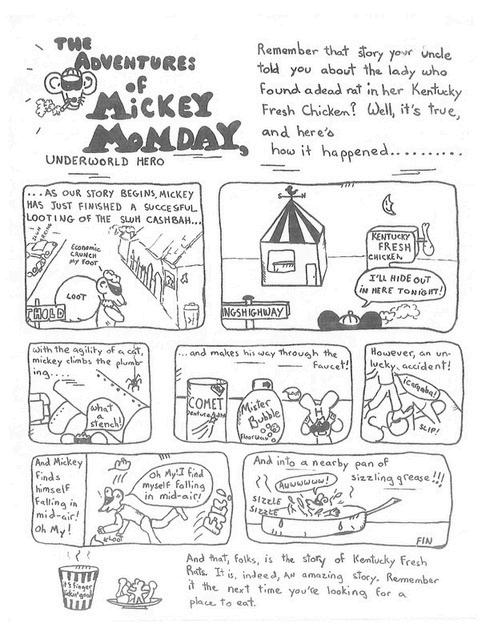 THE
ADVENTURES
of
MiCKEY
MONDAY,
UNDERWORLD HERO
Remember that story your uncle
told you about the lady who
found a dead rat in her Kentucky
Fresh Chicken? Well, it's true,
and here's
how it happened..........
...AS OUR STORY BEGINS, MICKEY
HAS JUST FINISHED A SUCCESFUL
LOOTING OF THE SLUH CASHBAH...
Economic
CRUNCH
MY FOOT
LOOT
THOLD
KENTUCKY
FRESH
CHICKEN
I'LL HIDE OUT
IN HERE TONIGHT!
INGSHIGHWAY
with the agility of a cat,
mickey climbs the plumb-
ing...
what
a
stench!
...and makes his way through the
faucet!
COMET
Mister
Bubble
Floor Wax
However, an un-
lucky accident!
SLIP!
And Mickey
finds
himself
falling in
mid-air!
Oh My!
Oh My! I find
myself falling
in mid-air!
And into a nearby pan of
sizzling grease!!!
AUWWWWW!
SIZZLE
SIZZLE
FIN
it's finger
lickin' good
And that, folks, is the story of Kentucky Fresh
Rats. It is, indeed, an amazing story. Remember
it the next time you're looking for a
place to eat.